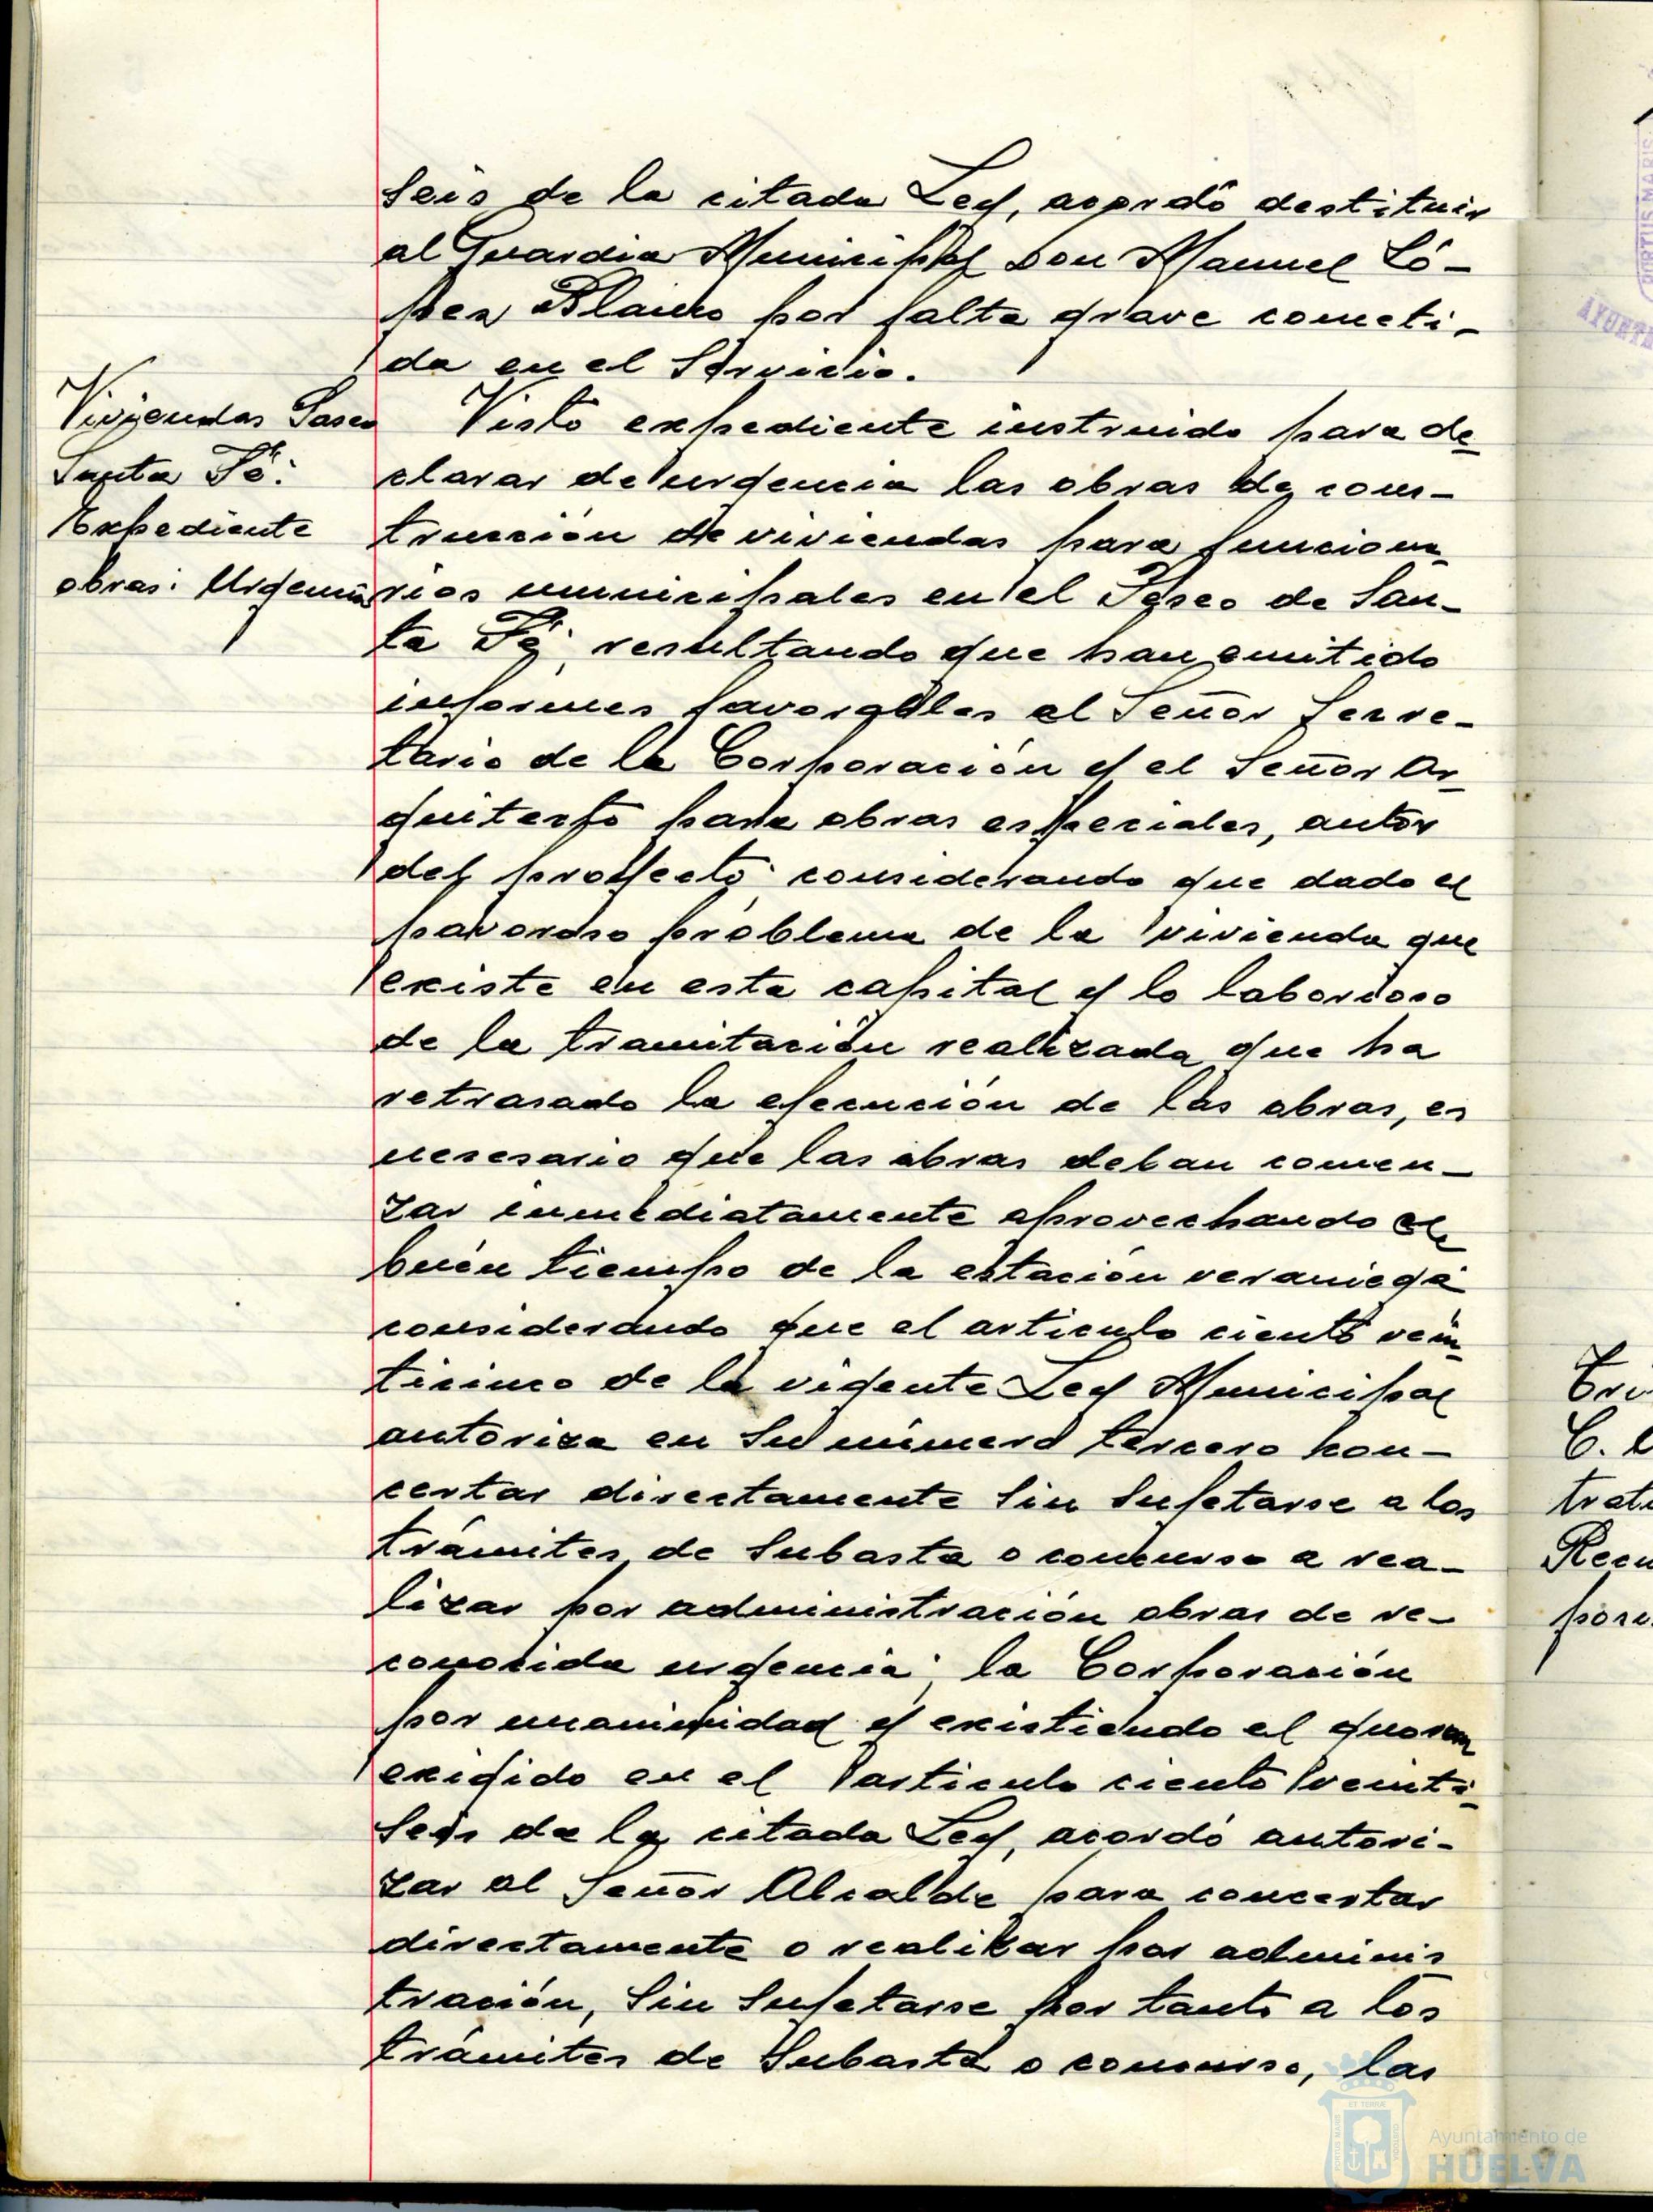 seis de la citada Ley, acordó destituir
al Guardia Municipal Don Manuel Ló-
pez Blanco por falta grave cometi-
da en el Servicio.
Viviendas Paseo
Santa Fé:
Expediente
obras: Urgencia
Visto expediente instruido para de-
clarar de urgencia las obras de cons-
trucción de viviendas para funciona-
rios municipales en el Paseo de San-
ta Fé; resultando que han emitido
informes favorables el Señor Secre-
tario de la Corporación y el Señor Ar-
quitecto para obras especiales, autor
del proyecto: considerando que dado el
pavoroso problema de la vivienda que
existe en esta capital y lo laborioso
de la tramitación realizada que ha
retrasado la ejecución de las obras, es
necesario que las obras deban comen-
zar inmediatamente aprovechando el
buen tiempo de la estación veraniega:
considerando que el articulo ciento vein-
ticinco de la vigente Ley Municipal
autoriza en su número tercero con-
certar directamente sin sujetarse a los
trámites de subasta o concurso a rea-
lizar por administración obras de re-
conocida urgencia; la Corporación
por unanimidad y existiendo el quorum
exigido en el articulo ciento veinti-
seis de la citada Ley, acordó autori-
zar al Señor Alcalde para concertar
directamente o realizar por adminis-
tración, sin sujetarse por tanto a los
trámites de subasta o concurso, las
PORTUS MARIS
AYUNTA
C.
trat
Recu
Ayuntamiento de
HUELVA